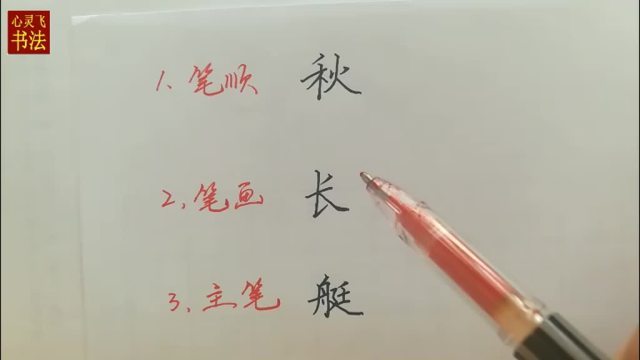 心灵飞
书法
1、笔顺 秋
2、笔画 长
3、主笔 艇